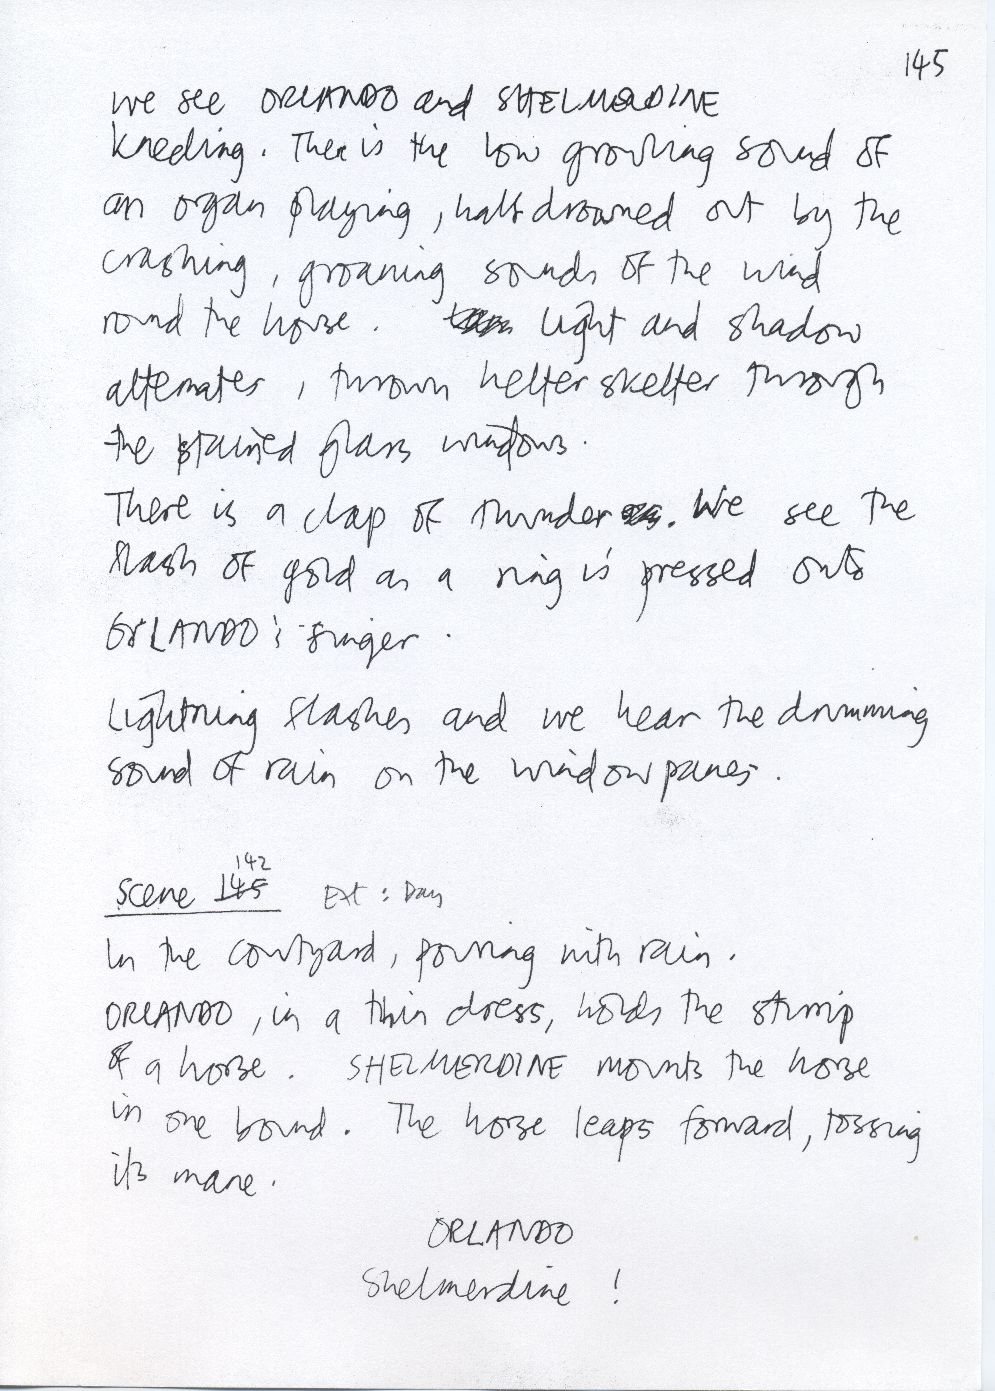 145
We see ORLANDO and SHELMERDINE
kneeling. There is the low growling sound of
an organ playing, half drowned out by the
crashing, groaning sounds of the wind
round the house. light and shadow
alternates, thrown helter skelter through
the stained glass windows.
There is a clap of thunder. We see the
flash of gold as a ring is pressed onto
ORLANDO's finger.
Lightning flashes and we hear the drumming
sound of rain on the window panes.
142
Scene 145 Ext : Day
In the courtyard, pouring with rain.
ORLANDO, in a thin dress, holds the stirrip
of a horse. SHELMERDINE mounts the horse
in one bound. The horse leaps forward, tossing
its mane.
ORLANDO
Shelmerdine !